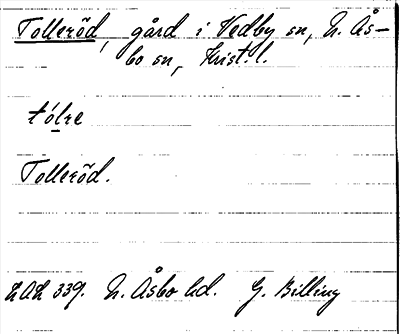 Tolleröd, gård i Vedby sn, N. Ås-
bo sn, Krist. l.
tólre
Tolleröd.
LAL 339. N. Åsbo hd. G. Billing